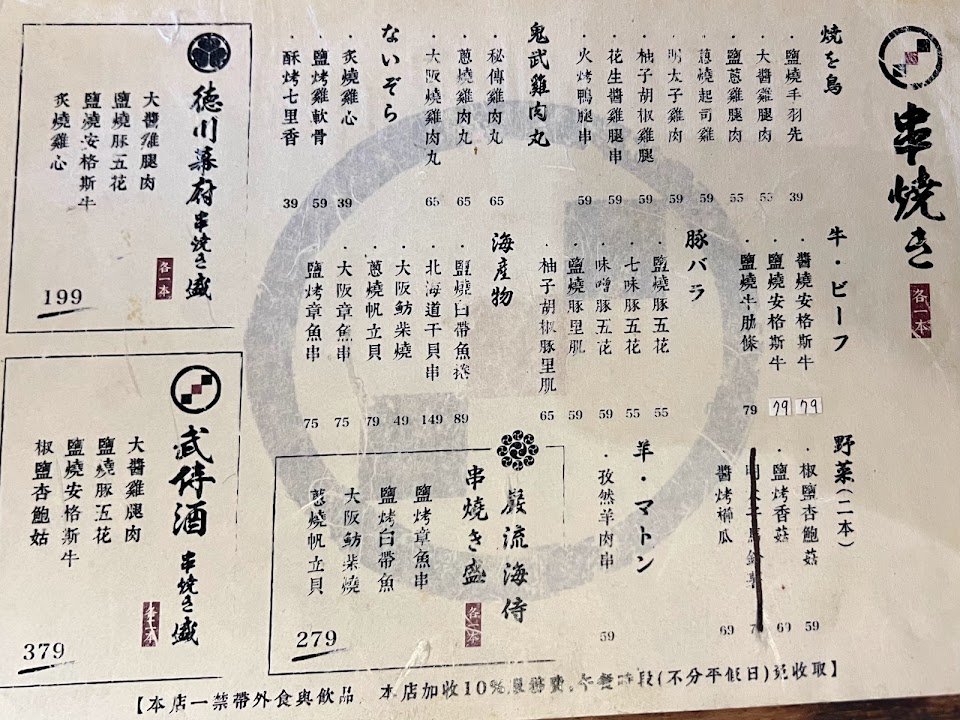 串焼き
各一本
焼き鳥
・鹽燒手羽先 39
・大醬雞腿肉 55
・鹽蔥雞腿肉 55
・蔥燒起司雞 59
・明太子雞肉 59
・柚子胡椒雞腿 59
・花生醬雞腿串 59
・火烤鴨腿串 59
鬼武雞肉丸
・秘傳雞肉丸 65
・蔥燒雞肉丸 65
・大阪燒雞肉丸 65
ないぞら
・炙燒雞心 39
・鹽烤雞軟骨 59
・酥烤七里香 39
牛・ビーフ
・醬燒安格斯牛 79
・鹽燒安格斯牛 79
・鹽燒牛肋條 79
豚バラ
・鹽燒豚五花 55
・七味豚五花 55
・味噌豚五花 59
・鹽燒豚里肌 59
・柚子胡椒豚里肌 65
海産物
・鹽燒白帶魚捲 89
・北海道干貝串 149
・大阪魴柴燒 49
・蔥燒帆立貝 79
・大阪章魚串 75
・鹽烤章魚串 75
野菜(二本)
・椒鹽杏鮑菇 59
・鹽烤香菇 69
醬烤櫛瓜 69
羊・マトン
・孜然羊肉串 59
巌流海侍
串燒き盛
各一本
鹽烤章魚串
鹽烤白帶魚
大阪魴柴燒
蔥燒帆立貝
279
徳川幕府串焼き盛
各一本
大醬雞腿肉
鹽燒豚五花
鹽燒安格斯牛
炙燒雞心
199
武伴酒串焼き盛
各二本
大醬雞腿肉
鹽燒豚五花
鹽燒安格斯牛
椒鹽杏鮑菇
379
【本店一禁帶外食與飲品 本店加收10%服務費,午餐時段(不分平假日)免收取】